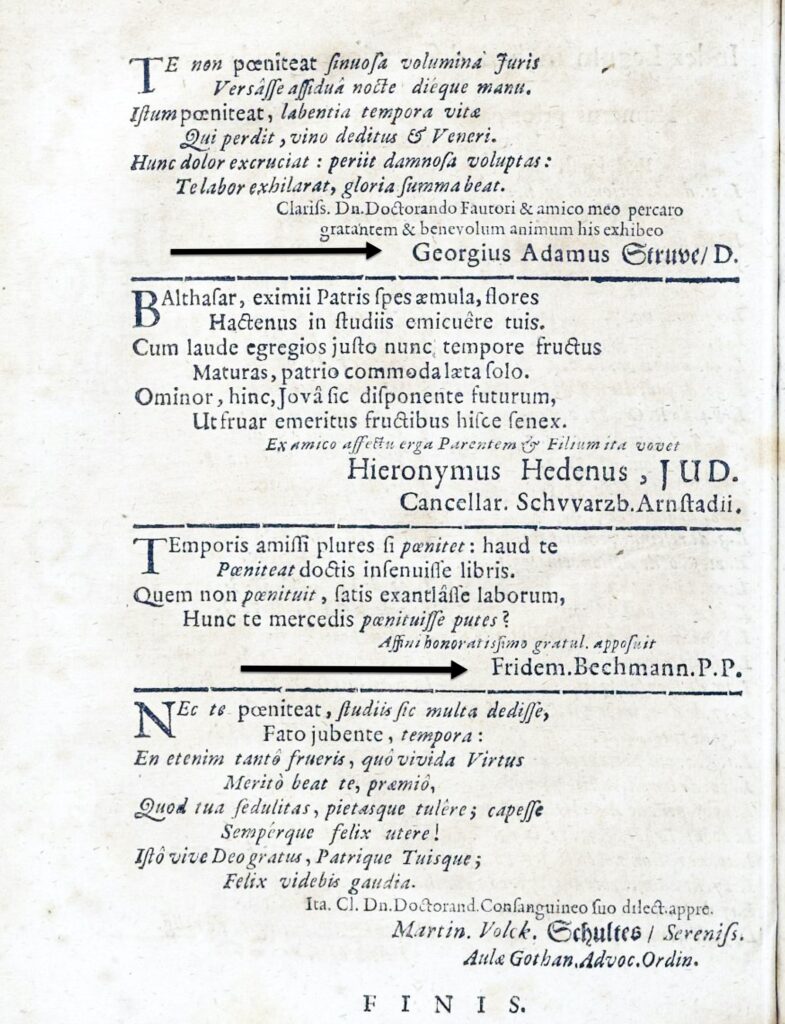 TE non pœniteat sinuosa volumina Juris
Versâsse assiduâ nocte diéque manu.
Istum pœniteat, labentia tempora vitæ
Qui perdit, vino deditus & Veneri.
Hunc dolor excruciat : periit damnosa voluptas :
Te labor exhilarat, gloria summa beat.
Clariss. Dn. Doctorando Fautori & amico meo percaro
gratantem & benevolum animum his exhibeo
Georgius Adamus Struve/ D.
BAlthasar, eximii Patris spes æmula, flores
Hactenus in studiis emicuêre tuis.
Cum laude egregios justo nunc tempore fructus
Maturas, patrio commoda læta solo.
Ominor, hinc, Jovâ sic disponente futurum,
Ut fruar emeritus fructibus hisce senex.
Ex amico affectu erga Parentem & Filium ita vovet
Hieronymus Hedenus, JUD.
Cancellar. Schvvarzb. Arnstadii.
TEmporis amissi plures si pœnitet : haud te
Pœniteat doctis insenuisse libris.
Quem non pœnituit, satis exantlâsse laborum,
Hunc te mercedis pœnituisse putes ?
Affini honoratissimo gratul. apposuit
Fridem. Bechmann. P. P.
NEc te pœniteat, studiis sic multa dedisse,
Fato jubente, tempora :
En etenim tantô frueris, quô vivida Virtus
Meritò beat te, præmiô,
Quod tua sedulitas, pietasque tulêre ; capesse
Sempérque felix utere !
Istô vive Deo gratus, Patrique Tuisque ;
Felix videbis gaudia.
Ita. Cl. Dn. Doctorand. Consanguineo suo dilect. appre.
Martin. Volck. Schultes / Sereniss.
Aulæ Gothan. Advoc. Ordin.
FINIS.